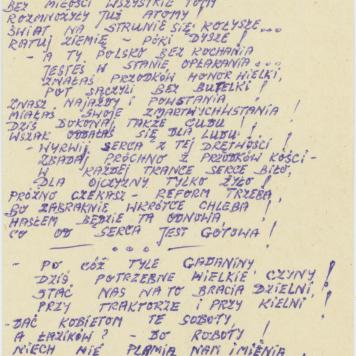 BEZ MIŁOŚCI WSZYSTKIE TOMY
ROZMNOŻYŁY JUŻ ATOMY
ŚWIAT NA STRUNIE SIĘ KOŁYSZE...
RATUJ ZIEMIĘ - PÓKI DYSZE!
- A TY POLSKO BEZ KOCHANIA
JESTEŚ W STANIE OPŁAKANIA...
ZNAŁAŚ PRZODKÓW HONOR WIELKI,
POT SĄCZYLI BEZ BUTELKI!
ZNASZ NAJAZDY I POWSTANIA
MIAŁAŚ SWOJE ZMARTWYCHWSTANIA!
DZIŚ DOKONAJ TAKŻE CUDU
WSZAK ODDAŁAŚ SIĘ DLA LUDU!
- WYRWIJ SERCA Z TEJ DRĘTWOŚCI
ZBADAJ PRÓCHNO Z PRZODKÓW KOŚCI -
W KAŻDEJ TRANCE SERCE BIŁO,
DLA OJCZYZNY TYLKO ŻYŁO!
PRÓŻNO CZEKASZ - REFORM TRZEBA
BO ZABRAKNIE WKRÓTCE CHLEBA!
HASŁEM BĘDZIE TA ODNOWA
CO OD SERCA JEST GOTOWA!
- PO CÓŻ TYLE GADANINY
DZIŚ POTRZEBNE WIELKIE CZYNY!
STAĆ NAS NA TO BRACIA DZIELNI,
PRZY TRAKTORZE I PRZY KIELNI!
- DAĆ KOBIETOM TE SOBOTY
A ŁAZIKÓW? - DO ROBOTY!
NIECH NIE PLAMIĄ NAM IMIENIA